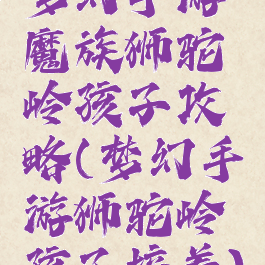 梦幻手游
魔族狮驼
岭孩子攻
略(梦幻手
游狮驼岭
孩子培养)